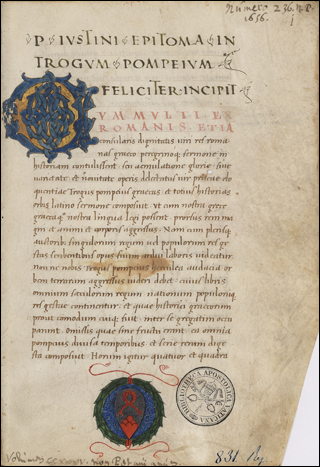 1656.
P · IVSTINI · EPITOMA · IN
TROGVM · POMPEIVM
FELICITER · INCIPIT
VM MVLTI EX
ROMANIS ETIA
consularis dignitatis uiri res roma
nas graeco peregrinoq; sermone in
historiam contulissent: seu aemulatione gloriae siue
uarietate et nouitate operis delectatus uir priscae elo
quentiae Trogus pompeius graecas et totius historias
orbis latino sermone composuit. ut cum nostra grece
graecaq; nostra lingua legi possent. prorsus rem ma
gni et animi et corporis aggressus. Nam cum plerisq;
auctorib; singulorum regum uel populorum res ge
stas scribentibus opus suum ardui laboris uideatur.
non ne nobis Trogus pompeius herculea audacia or
bem terrarum aggressus uideri debet: cuius libris
omnium saeculorum regum nationum populorumq;
res gestae continentur. et quae historici graecorum
prout comodum cuiq; fuit inter se segregatim occu
parunt. omissis quae sine fructu erant. ea omnia
pompeius diuisa temporibus et serie rerum dige
sta composuit. Horum igitur quattuor et quadra
BIBLIOTHECA APOSTOLICA VATICANA
831